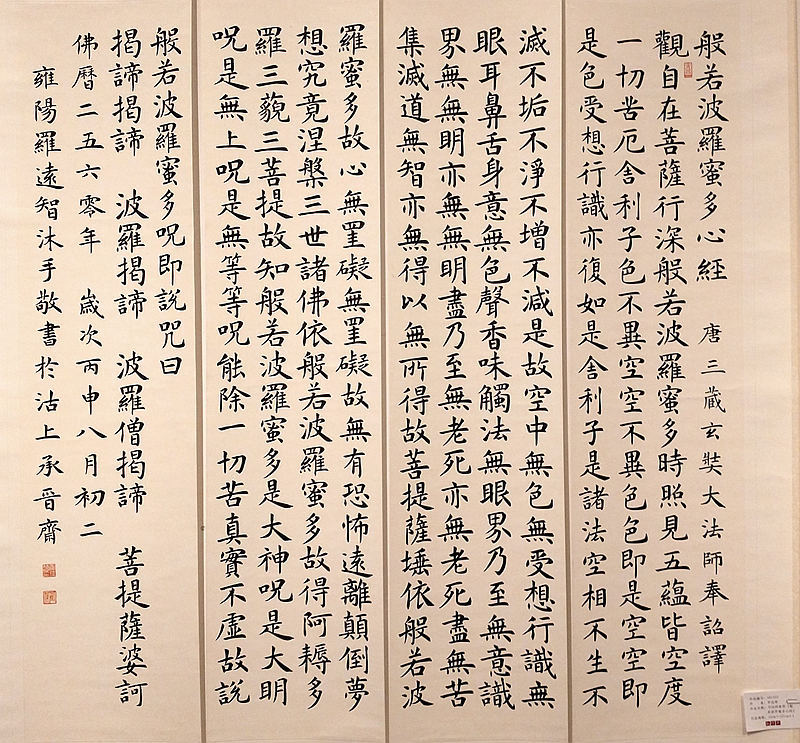 般若波羅蜜多心經 唐三藏玄奘大法師奉詔譯
觀自在菩薩行深般若波羅蜜多時照見五蘊皆空度
一切苦厄舍利子色不異空空不異色色即是空空即
是色受想行識亦復如是舍利子是諸法空相不生不
滅不垢不淨不增不減是故空中無色無受想行識無
眼耳鼻舌身意無色聲香味觸法無眼界乃至無意識
界無無明亦無無明盡乃至無老死亦無老死盡無苦
集滅道無智亦無得以無所得故菩提薩埵依般若波
羅蜜多故心無罣礙無罣礙故無有恐怖遠離顛倒夢
想究竟涅槃三世諸佛依般若波羅蜜多故得阿耨多
羅三藐三菩提故知般若波羅蜜多是大神呪是大明
呪是無上呪是無等等呪能除一切苦真實不虛故說
般若波羅蜜多呪即說咒曰
揭諦揭諦 波羅揭諦 波羅僧揭諦 菩提薩婆訶
佛曆二五六零年 歲次丙申八月初二
雍陽羅遠智沐手敬書於沽上承晉齋